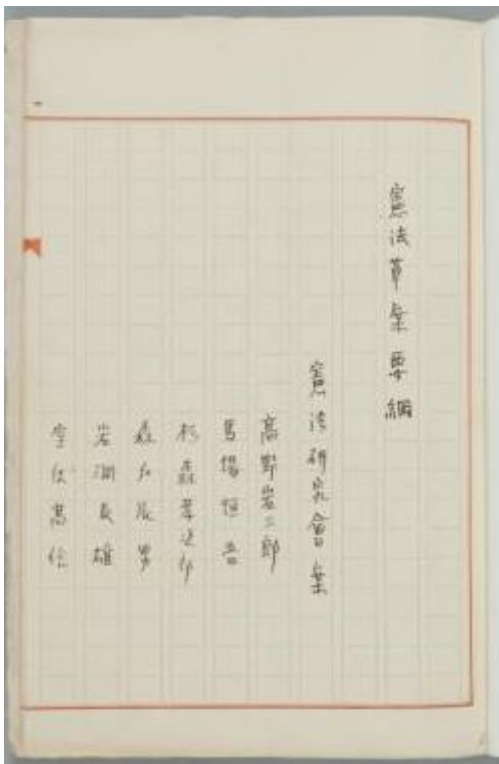 憲法草案要綱
憲法研究會案
高野岩三郎
馬場恒吾
杉森孝次郎
森戸辰男
岩淵辰雄
室伏高信